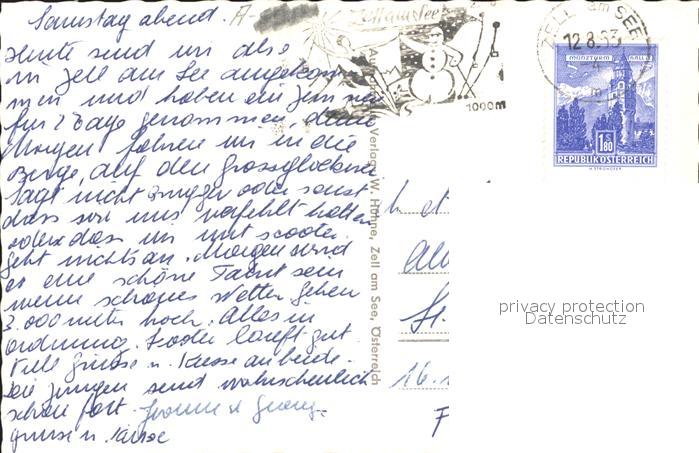 Samstag abend.
Heute sind wir also
in Zell am See angekom
men und haben ein Zimmer
für 2 Tage genommen, denn
Morgen fahren wir in die
Berge, auf den Grossglockner
sagt nicht Zugger oder sonst
dass wir uns verfehlt hatten
oder dass wir mit scooter
geht nichts an. Morgen wird
es eine schöne Fahrt sein
wenn schönes Wetter gehen
3.000 meter hoch. Alles in
ordnung. Scooter lauft gut.
Viele Grüsse u. Küsse an beide.
Die Jungen sind wahrscheinlich
schon fort. Georg
Grüsse u. Küsse
Verlag W. Hühne, Zell am See, Österreich
Zell am See
1000m
ZELL am SEE
12.8.63
MÜNZTURM HALL i.T.
S 1.80
REPUBLIK ÖSTERREICH
privacy protection
Datenschutz